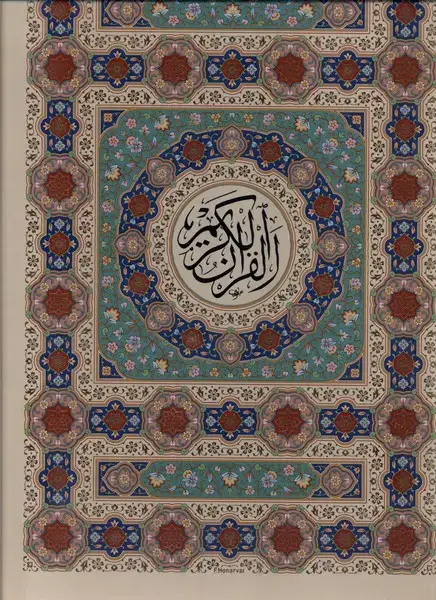 القرآن الكريم
F.Honarvar